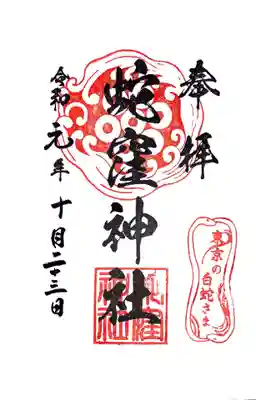 奉拝
蛇窪神社
令和元年十月二十三日
東京の
白蛇さま
蛇窪
神社